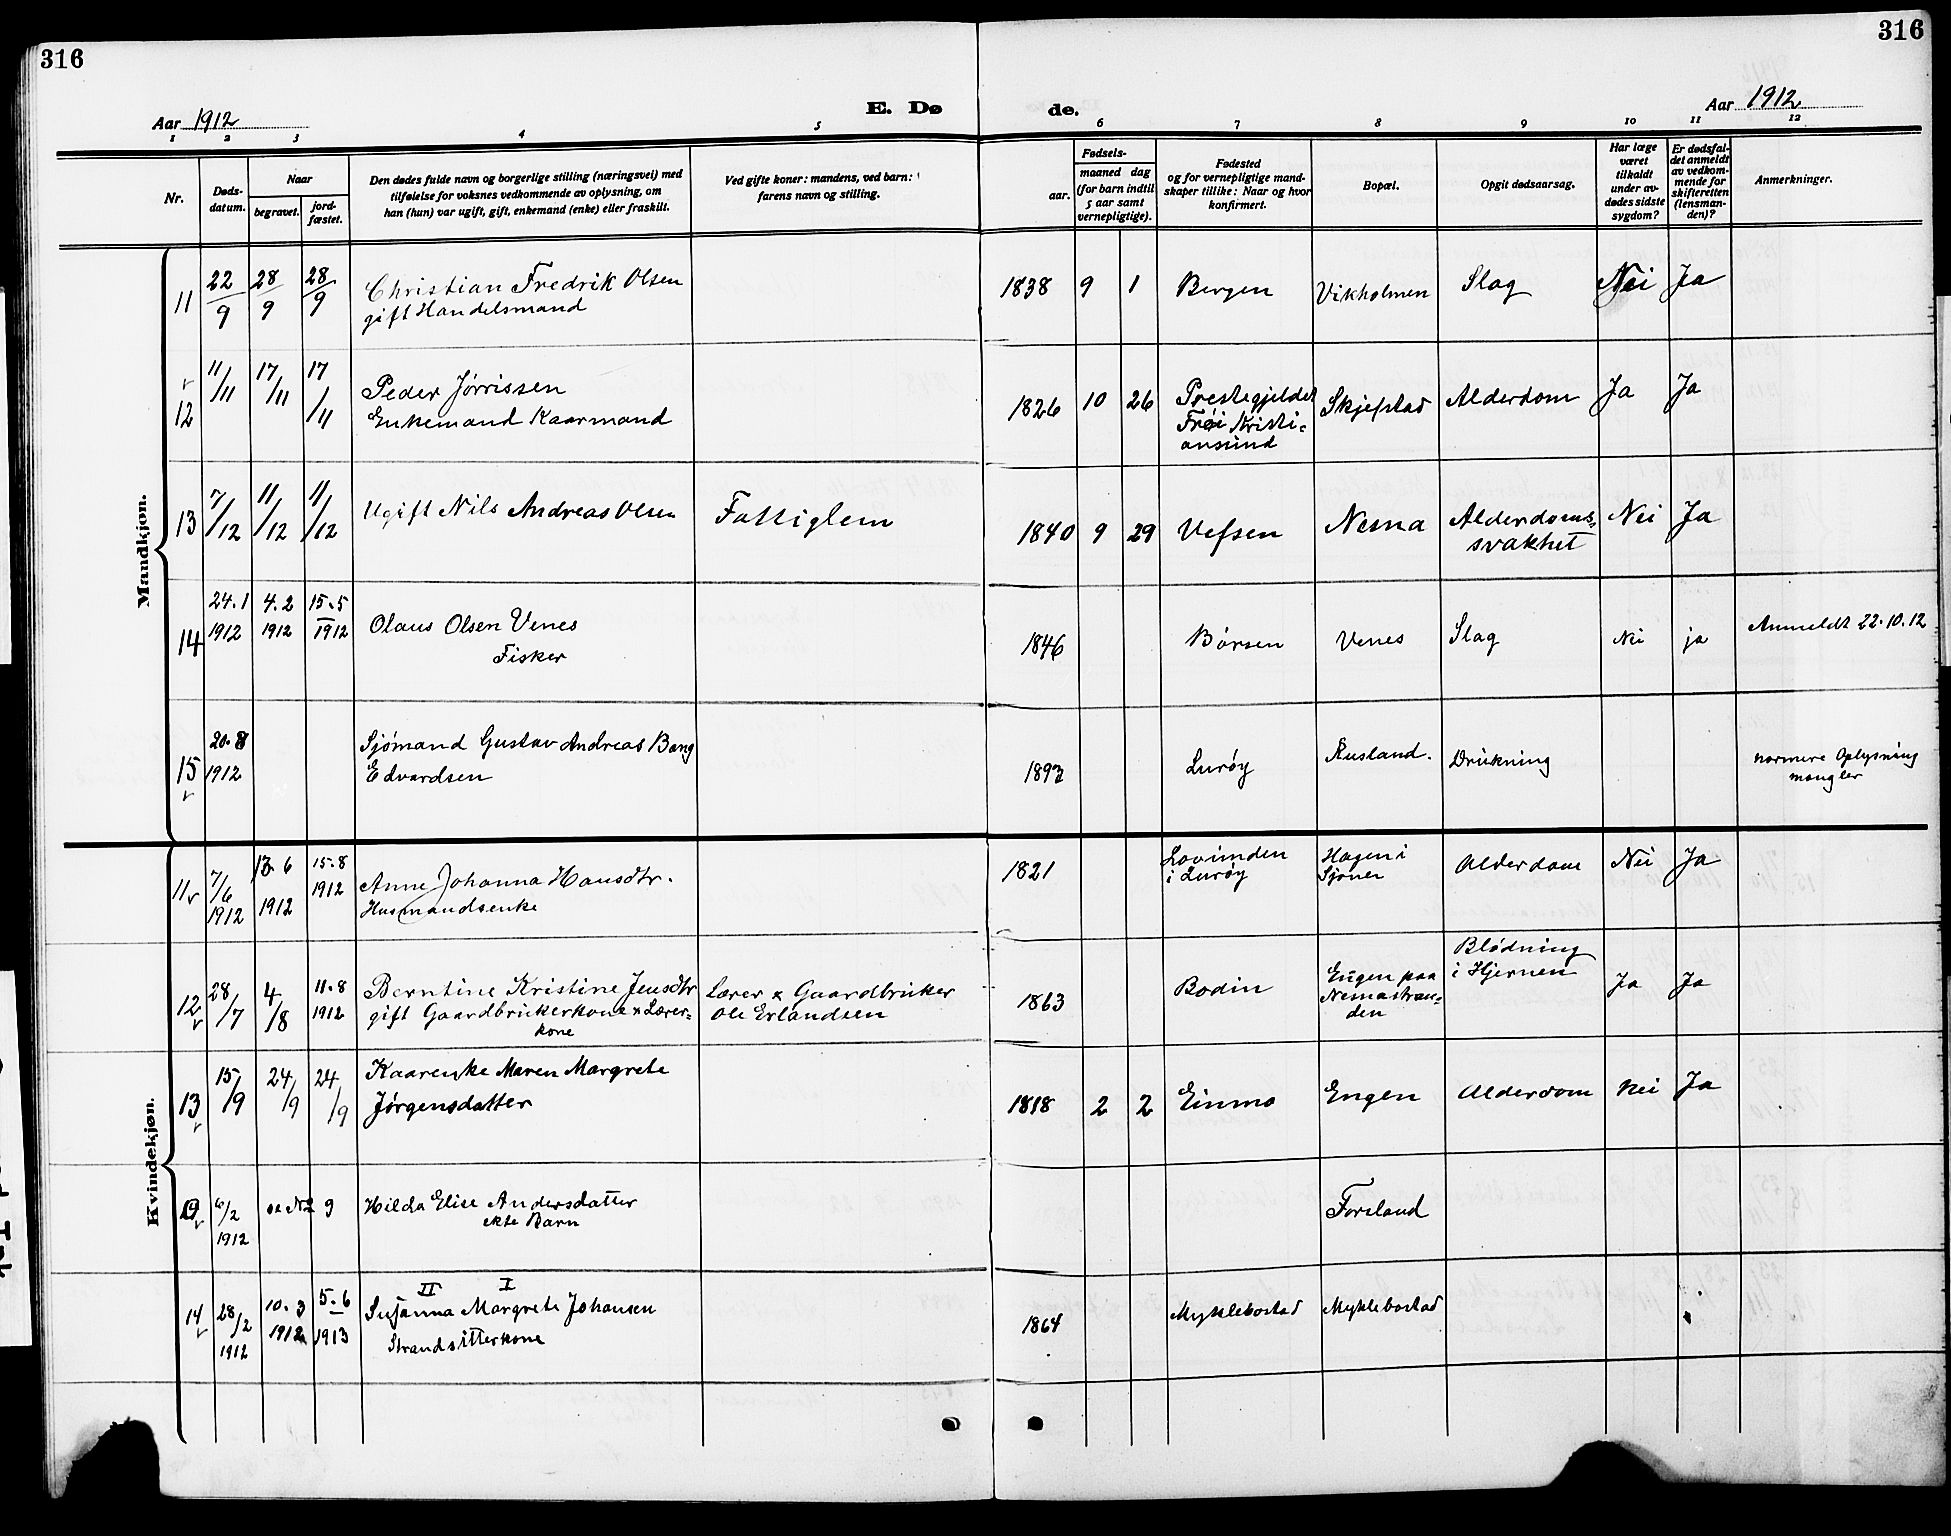 316
316
Aar 1912
E. Dø
de.
Aar 1912
1 2 3 4 5 6 7 8 9 10 11 12
Nr.
Døds-
datum.
Naar
begravet.
jord-
fæstet.
Den dødes fulde navn og borgerlige stilling (næringsvei) med
tilføielse for voksnes vedkommende av oplysning, om
han (hun) var ugift, gift, enkemand (enke) eller fraskilt.
Ved gifte koner: mandens, ved barn:
farens navn og stilling.
Fødsels-
aar.
maaned dag
(for barn indtil
5 aar samt
vernepligtige).
Fødested
og for vernepligtige mand-
skaper tillike: Naar og hvor
konfirmert.
Bopæl.
Opgit dødsaarsag.
Har læge
været
tilkaldt
under av-
dødes sidste
sygdom?
Er dødsfal-
det anmeldt
av vedkom-
mende for
skifteretten
(lensman-
den)?
Anmerkninger.
Mandkjøn.
11 22/9 28/9 28/9 Christian Fredrik Olsen
gift Handelsmand
1838 9 1 Bergen Vikholmen Slag Nei Ja
12 11/11 17/11 17/11 Peder Jørrissen
Enkemand Kaarmand
1826 10 26 Prestegjeldet
Frei Kristi=
ansund
Skjefstad Alderdom Ja Ja
13 7/12 11/12 11/12 Ugift Nils Andreas Olsen Fattiglem
1840 9 29 Vefsen Nesna Alderdoms-
svakhet
Nei Ja
14 24.1
1912
4.2
1912
15.5
1912
Olaus Olsen Venes
Fisker
1846 Børsen Venes Slag Nei ja Anmeldt 22.10.12
15 20.8
1912
Sjømand Gustav Andreas Bang
Edvardsen
1892 Lurøy Rusland. Drukning nærmere Oplysning
mangler
Kvindekjøn.
11 7/6
1912
13.6
1912
15.8
1912
Anne Johanna Hansdtr.
Husmandsenke
1821 Lovunden
i Lurøy
Hagen i
Sjonen
Alderdom Nei Ja
12 28/7 4/8 11.8
1912
Berntine Kristine Jensdtr
gift Gaardbrukerkone & Lærer=
kone
Lærer & Gaardbruker
Ole Erlandsen
1863 Bodin Engen paa
Nesnastran=
den
Blødning
i Hjernen
Ja Ja
13 15/9 24/9 24/9 Kaarenke Maren Margrete
Jørgensdatter
1818 2 2 Einmo Engen Alderdom Nei Ja
6/2
1912
se No 9 Hilda Elise Andersdatter
ekte Barn
Forsland
14 28/2
1912
10.3
1912
5.6
1913
II I
Susanna Margrete Johansen
Strandsitterkone
1864 Myklebostad Myklebostad